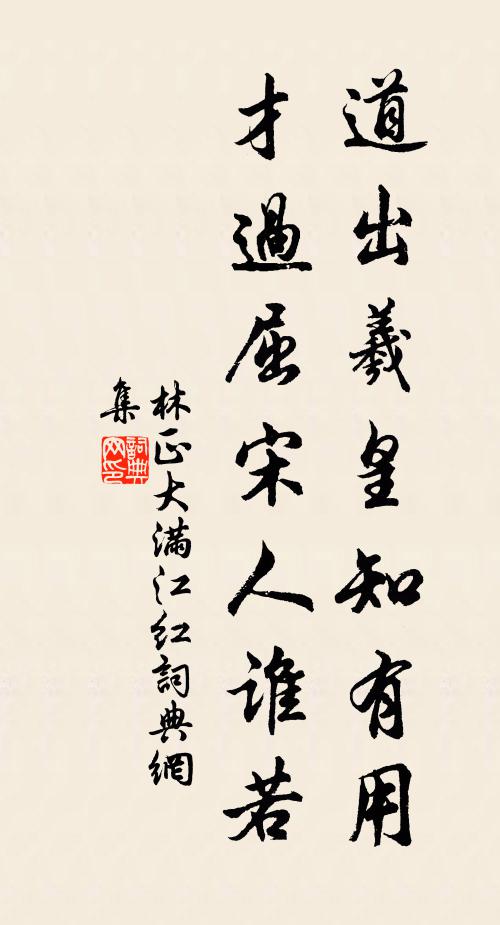 道出羲皇知有用
才過屈宋人誰若
林正大滿江紅詞典網
集
詞典網印